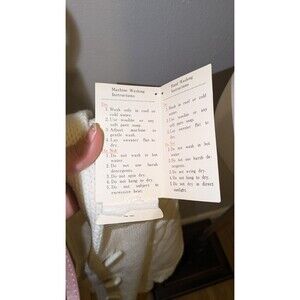 Machine Washing
Instructions
Do
1. Wash only in cool or
cold water.
2. Use woolite or any
soft pure soap.
3. Adjust machine to
gentle wash.
4. Lay sweater flat to
dry.
Do Not
1. Do not wash in hot
water.
2. Do not use harsh
detergents.
3. Do not spin dry.
4. Do not hang to dry.
5. Do not subject to
excessive heat.
Hand Washing
Instructions
Do
1. Wash in cool or cold
water.
2. Use woolite or any
soft pure soap.
Lay sweater flat to
dry.
Do Not
1. Do not wash in hot
water.
2. Do not use harsh
detergents.
3. Do not wring dry.
4. Do not hang to dry.
5. Do not dry in direct
sunlight.